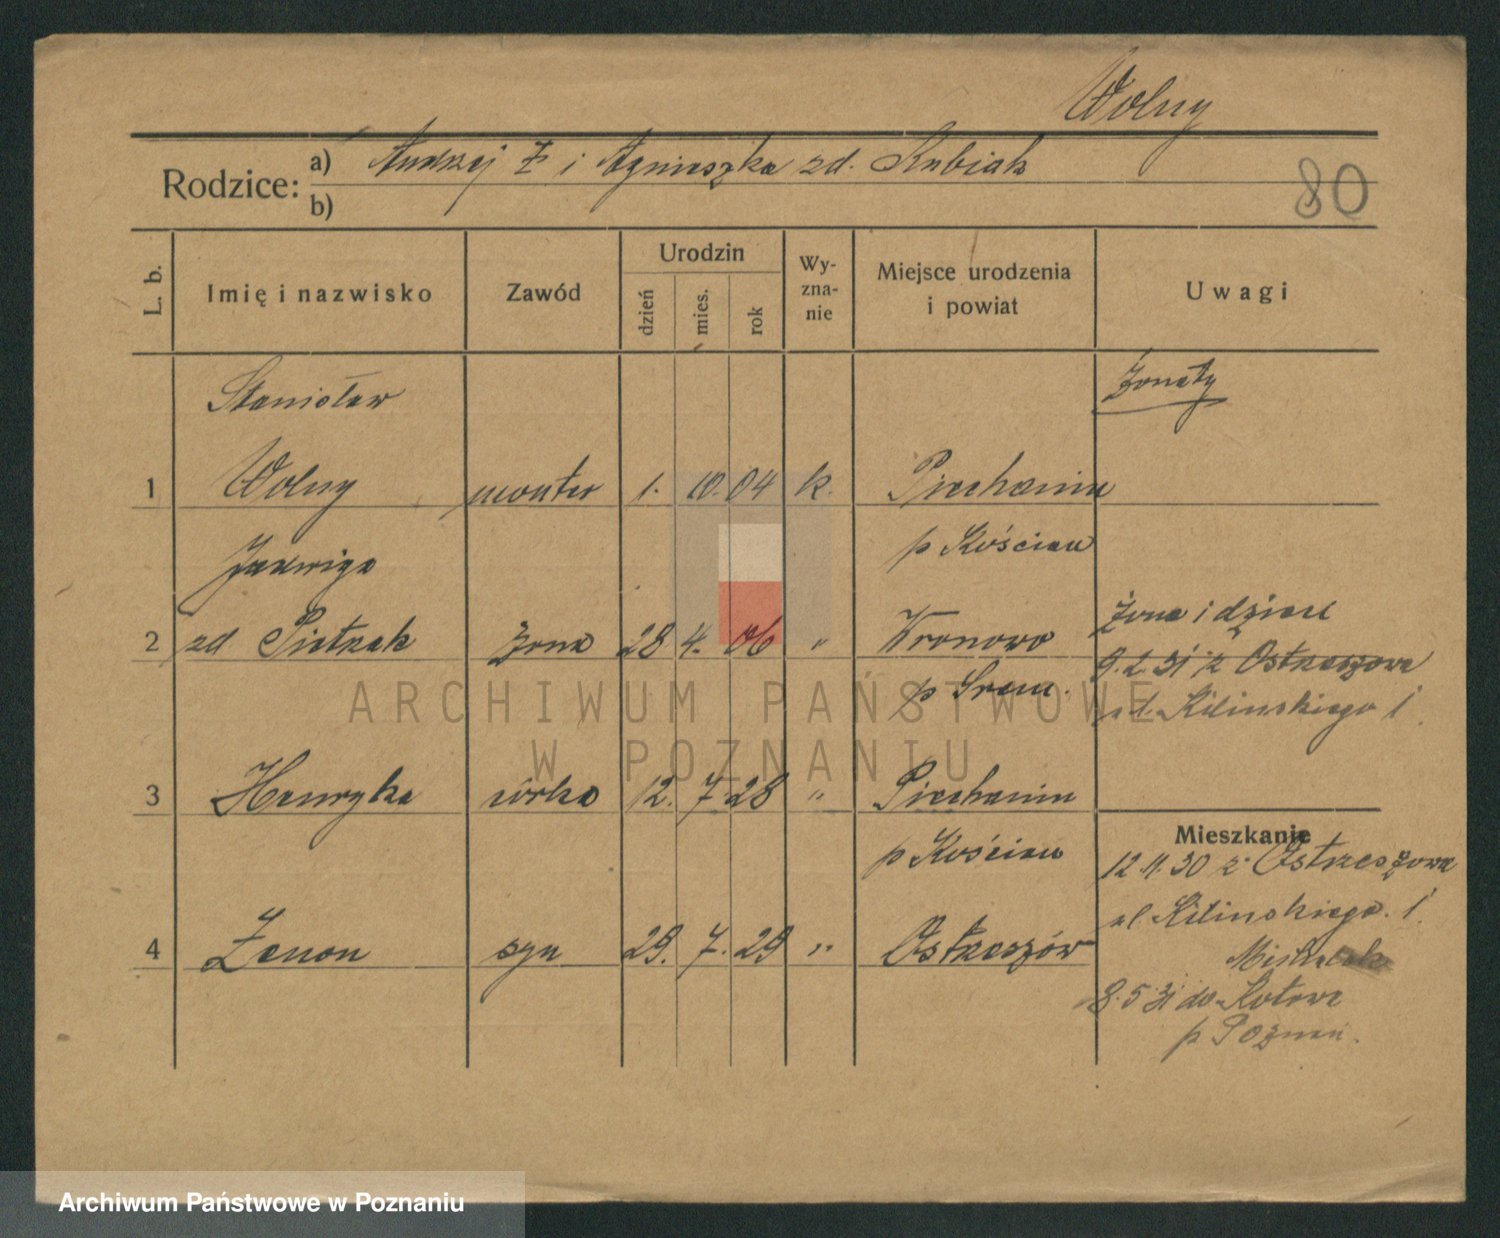 Wolny
Rodzice: a) Andrzej i Agnieszka zd. Kubiak
b)
80
L. b. Imię i nazwisko Zawód Urodzin dzień mies. rok Wyznanie Miejsce urodzenia i powiat Uwagi
Stanisław żonaty
1 Wolny monter 1. 10. 04 k. Piechanin
Jadwiga p Kościan
2 zd Pietrzak żona 28 4. 06 " Kronowo
p Śrem.
Żona i dzieci
9. 2. 31 z Ostrzeszowa
ul. Kilińskiego 1
3 Henryka córka 12. 7. 28 " Piechanin
p Kościan
Mieszkanie
12.11.30 z Ostrzeszowa
ul. Kilińskiego. 1.
4 Zenon syn 29. 7. 29 " Ostrzeszów
8.5 31 do Kotowa
p Poznań.
ARCHIWUM PAŃSTWOWE
W POZNANIU
Archiwum Państwowe w Poznaniu